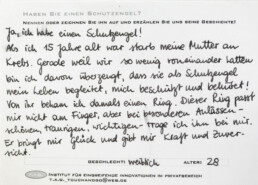 HABEN SIE EINEN SCHUTZENGEL?
NENNEN ODER ZEICHNEN SIE IHN AUF UND ERZÄHLEN SIE UNS SEINE GESCHICHTE!
Ja, ich habe einen Schutzengel!
Als ich 15 Jahre alt war starb meine Mutter an
Krebs. Gerade weil wir so wenig voneinander hatten
bin ich davon überzeugt, dass sie als Schutzengel
mein Leben begleitet, mich beschützt und behütet!
Von ihr bekam ich damals einen Ring. Dieser Ring passt
mir nicht am Finger, aber bei besonderen Anlässen-
schönen, traurigen, wichtigen- trage ich ihn bei mir.
Er bringt mir Glück und gibt mir Kraft und Zuver-
sicht.
GESCHLECHT: weiblich ALTER: 28
INSTITUT FÜR EINGREIFENDE INNOVATIONEN IM PRIVATBEREICH